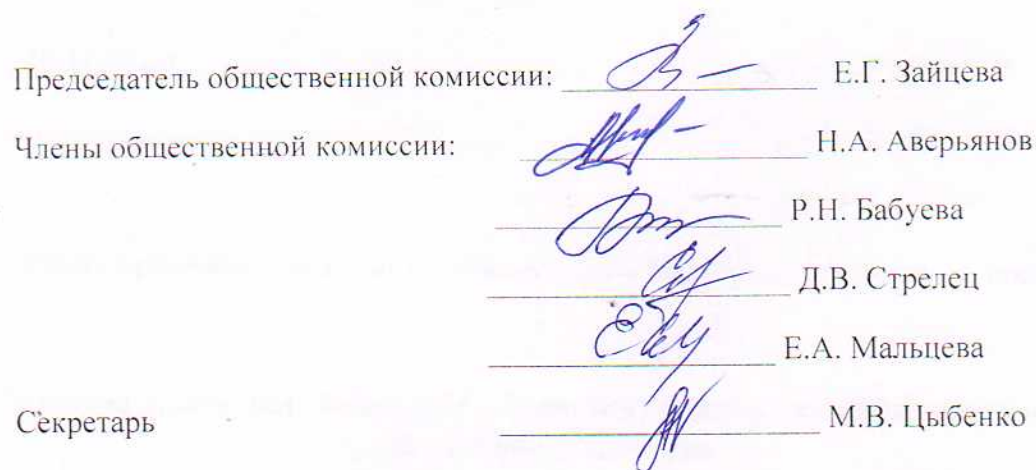 Председатель общественной комиссии: Е.Г. Зайцева
Члены общественной комиссии: Н.А. Аверьянов
Р.Н. Бабуева
Д.В. Стрелец
Е.А. Мальцева
Секретарь М.В. Цыбенко